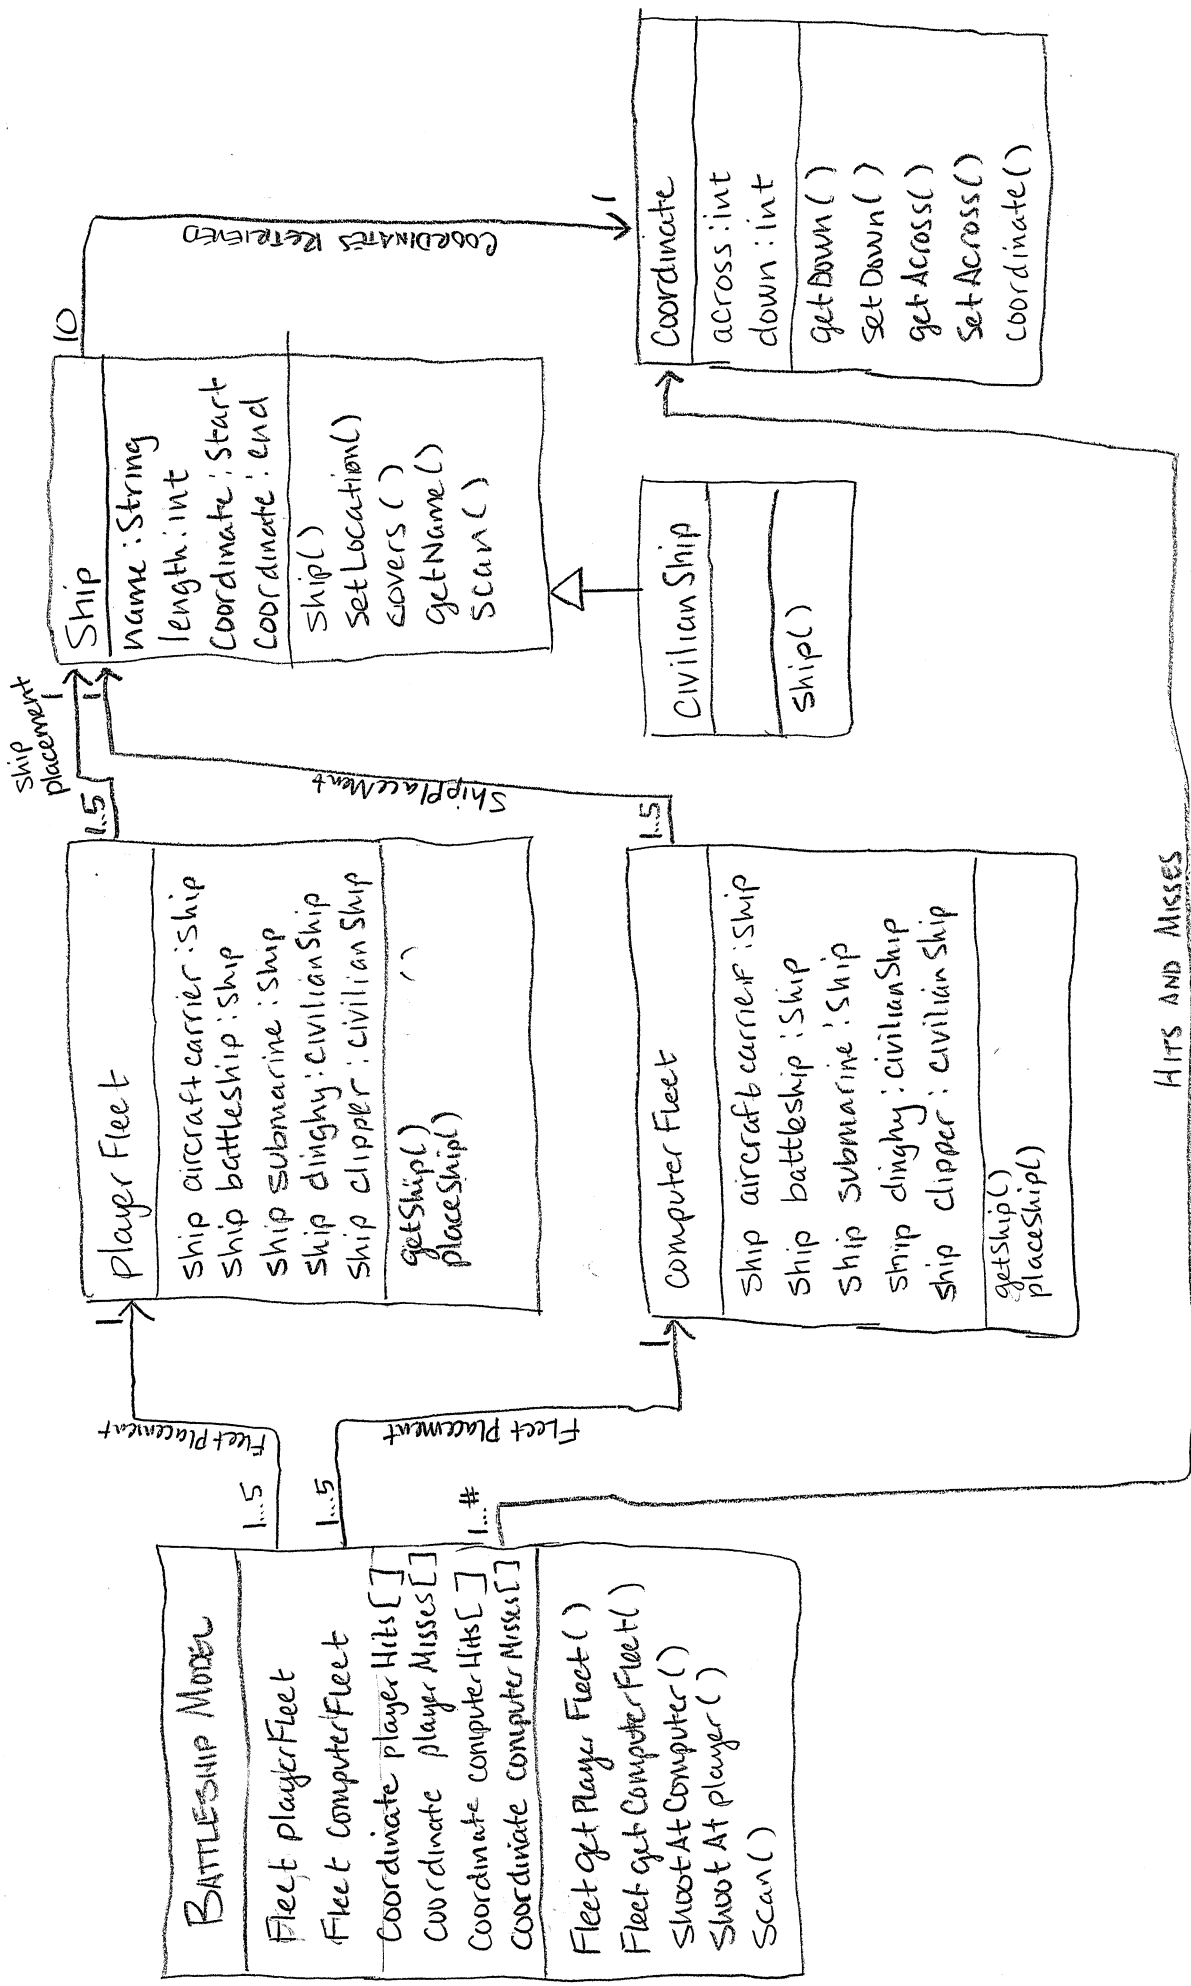 BATTLESHIP MODEL
Fleet playerFleet
Fleet computerFleet
Coordinate playerHits[]
Coordinate playerMisses[]
Coordinate computerHits[]
Coordinate computerMisses[]
Fleet getPlayer Fleet()
Fleet getComputerFleet()
ShootAtComputer()
ShootAtplayer()
Scan()
1...5
Fleet Placement
1
1...5
Fleet Placement
1
1...#
HITS AND MISSES
player Fleet
Ship aircraft carrier:Ship
Ship battleship:Ship
Ship submarine:Ship
Ship dinghy:civilianShip
Ship clipper:civilian Ship
getShip()
placeShip()
()
1..5
ship
placement
1
Computer Fleet
Ship aircraft carrier:Ship
Ship battleship:Ship
Ship submarine:Ship
Ship dinghy:civilianShip
Ship clipper:civilianShip
getShip()
placeShip()
1..5
ShipPlacement
1
Ship
name:String
length:int
Coordinate:Start
Coordinate:end
Ship()
SetLocation()
covers()
getName()
Scan()
10
COORDINATES RETRIEVED
1
Civilian Ship
Ship()
Coordinate
across:int
down:int
getDown()
SetDown()
getAcross()
SetAcross()
Coordinate()